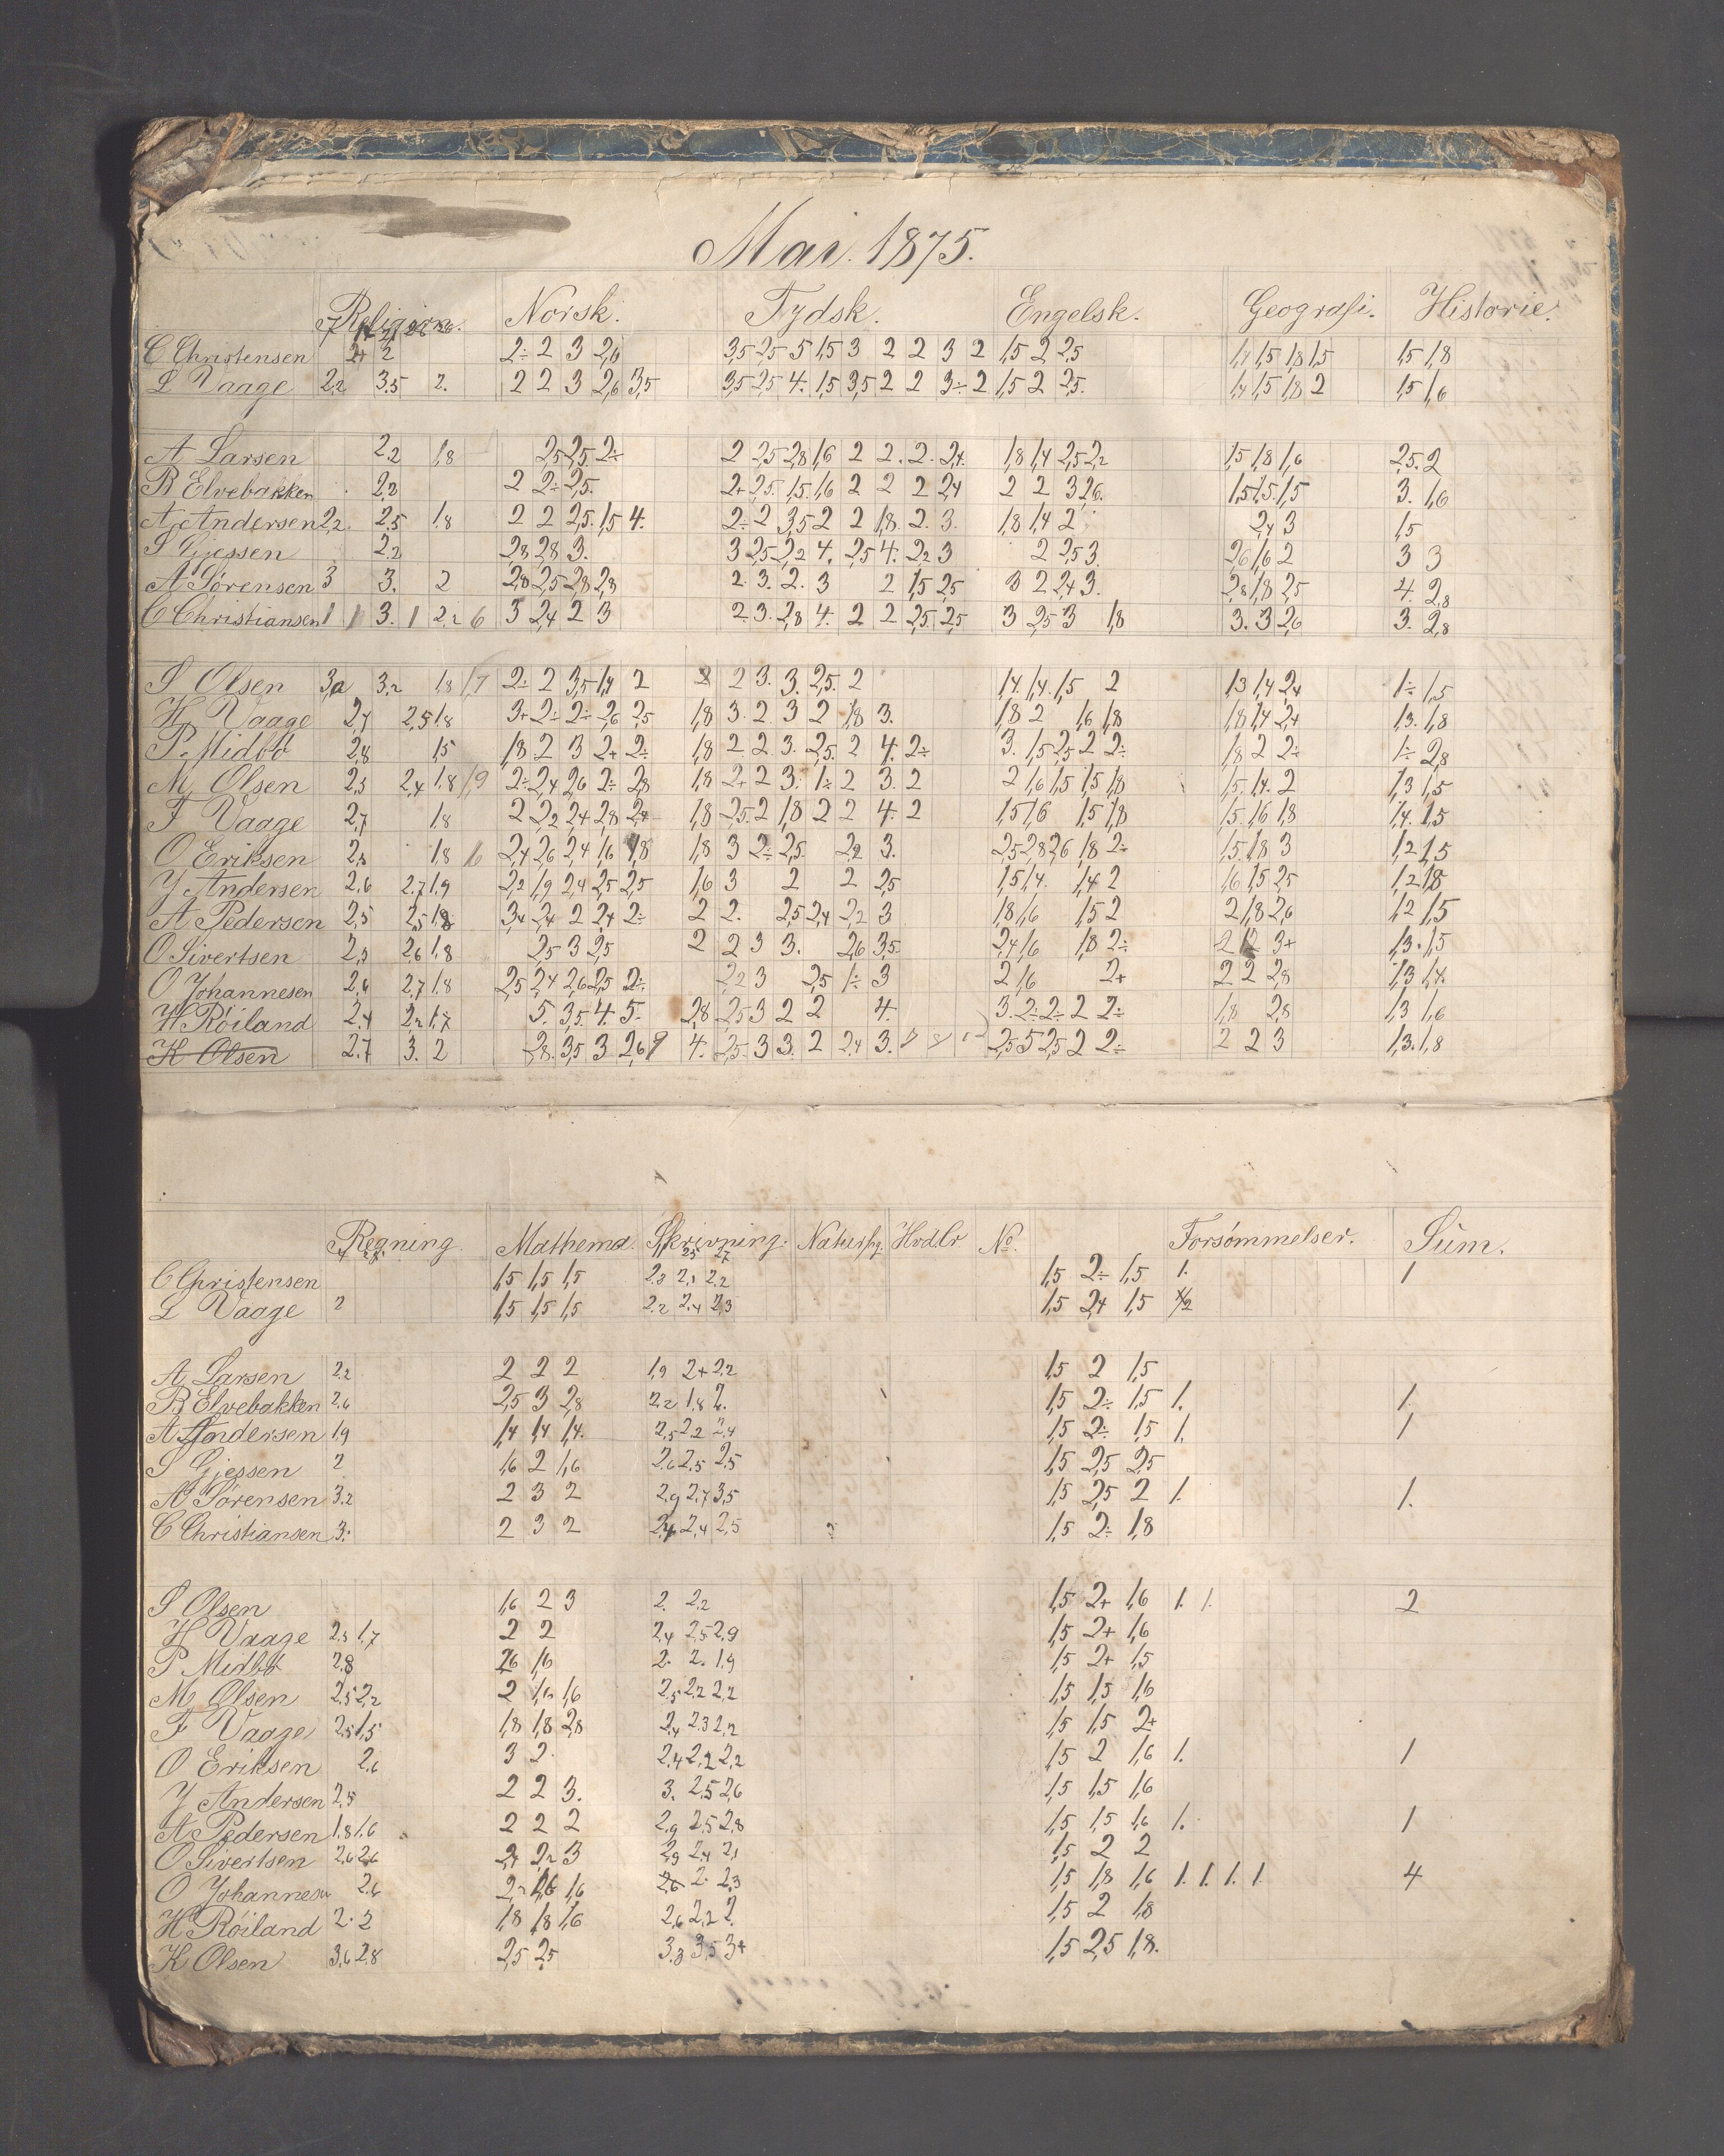 Mai. 1875.
Religion. Norsk. Tydsk. Engelsk. Geografi. Historie.
C Christensen 2+ 2 2÷ 2 3 2,6 3,5 2,5 5 1,5 3 2 2 3 2 1,5 2 2,5 1,4 1,5 1,8 1,5 1,5 1,8
L Vaage 2,2 3,5 2. 2 2 3 2,6 3,5 3,5 2,5 4. 1,5 3,5 2 2 3÷ 2 1,5 2 2,5. 1,4 1,5 1,8 2 1,5 1,6
A Larsen 2,2 1,8 2,5 2,5 2÷ 2 2,5 2,8 1,6 2 2. 2. 2,4. 1,8 1,4 2,5 2,2 1,5 1,8 1,6 2,5. 2
B Elvebakken 2,3 2 2÷ 2,5. 2+ 2,5. 1,5. 1,6 2 2 2 2,4 2 2 3 2,6. 1,5 1,5. 1,5 3. 1,6
A Andersen 2,2. 2,5 1,8 2 2 2,5. 1,5 4. 2÷ 2 3,5 2 2 1,8. 2. 3. 1,8 1,4 2 2,4 3 1,5
S Gjessen 2,2 2,8 2,8 3. 3 2,5 2,2 4. 2,5 4. 2,2 3 2 2,5 3. 2,6 1,6 2 3 3
A Sørensen 3 3. 2 2,8 2,5 2,8 2,8 2. 3. 2. 3 2 1,5 2,5 3 2 2,4 3. 2,8 1,8 2,5 4. 2,8
C Christiansen 1 1 3. 1 2,2 6 3 2,4 2 3 2. 3. 2,8 4. 2 2 2,5. 2,5 3 2,5 3 1,8 3. 3 2,6 3. 2,8
S Olsen 3,2 1,8 1,7 2÷ 2 3,5 1,4 2 2 3. 3. 2,5. 2 1,4. 1,4. 1,5 2 1,3 1,4 2,4 1÷ 1,5
H Vaage 2,7 2,5 1,8 3+ 2÷ 2÷ 2,6 2,5 1,8 3. 2. 3 2 1,8 3. 1,8 2 1,6 1,8 1,8 1,4 2,4 1,3. 1,8
P Midbö 2,8 1,5 1,8. 2 3 2+ 2÷ 1,8 2. 2. 3. 2,5. 2 4. 2÷ 3. 1,5 2,5 2 2÷ 1,8 2 2÷ 1÷ 2,8
M Olsen 2,3 2,4 1,8 1,9 2÷ 2,4 2,6 2÷ 2,8 1,8 2+ 2 3. 1÷ 2 3. 2 2 1,6 1,5 1,5 1,8 1,5. 1,4. 2 1,3 1,5
F Vaage 2,7 1,8 2 2,2 2,4 2,8 2,4 1,8 2,5. 2 1,8 2 2 4. 2 1,5 1,6 1,5 1,8 1,5. 1,6 1,8 1,4. 1,5
O Eriksen 2,3 1,8 2,4 2,6 2,4 1,6 1,8 1,8 3 2÷ 2,5. 2,2 3. 2,5 2,8 2,6 1,8 2÷ 1,5. 1,8 3 1,2 1,5
J Andersen 2,6 2,7 1,9 2,2 1,9 2,4 2,5 2,5 1,6 3 2 2 2,5 1,5 1,4. 1,4 2 1,6 1,5 2,5 1,2 1,8
A Pedersen 2,5 2,5 1,8 3,4 2,4 2 2,4 2÷ 2 2. 2,5 2,4 2,2 3 1,8 1,6 1,5 2 2 1,8 2,6 1,2 1,5
O Sivertsen 2,3 2,6 1,8 2,5 3 2,5 2 2 3 3. 2,6 3,5. 2,4 1,6 1,8 2÷ 2 3+ 1,3. 1,5
O Johannesen 2,6 2,7 1,8 2,5 2,4 2,6 2,5 2÷ 2,2 3 2,5 1÷ 3 2 1,6 2+ 2 2 2,8 1,3 1,4.
H Röiland 2,4 2,2 1,7 5. 3,5. 4. 5. 2,8 2,5 3 2 2 4. 3. 2÷ 2÷ 2 2÷ 1,8 2,8 1,3 1,6
K Olsen 2,7 3. 2 2,8. 3,5 3 2,6 4. 2,5. 3 3. 2 2,4 3. 2,5 5 2,5 2 2÷ 2 2 3 1,3. 1,8
Regning. Mathema. Skrivning. Naturfg. Hvdlr No. Forsømmelser. Sum.
C Christensen 1,5 1,5 1,5 2,3 2,1 2,2 1,5 2÷ 1,5 1. 1
L Vaage 2 1,5 1,5 1,5 2,2 2,4 2,3 1,5 2,4 1,5 1/2
A Larsen 2,2 2 2 2 1,9 2+ 2,2 1,5 2 1,5
B Elvebakken 2,6 2,5 3 2,8 2,2 1,8 2. 1,5 2÷ 1,5 1. 1
A Andersen 1,9 1,4 1,4 1,4. 2,5 2,2 2,4 1,5 2÷ 1,5 1. 1
S Gjessen 2 1,6 2 1,6 2,6 2,5 2,5 1,5 2,5 2,5
A Sørensen 3,2 2 3 2 2,9 2,7 3,5 1,5 2,5 2 1. 1.
C Christiansen 3. 2 3 2 2,4 2,4 2,5 1,5 2÷ 1,8
S Olsen 1,6 2 3 2. 2,2 1,5 2+ 1,6 1. 1. 2
H Vaage 2,3 1,7 2 2 2,4 2,5 2,9 1,5 2+ 1,6
P Midbö 2,8 2,6 1,6 2. 2. 1,9 1,5 2+ 1,5
M Olsen 2,5 2,2 2 1,6 1,6 2,5 2,2 2,2 1,5 1,5 1,6
F Vaage 2,5 1,5 1,8 1,8 2,8 2,4 2,3 2,2 1,5 1,5 2+
O Eriksen 2,6 3 2. 2,4 2,2 2,2 1,5 2 1,6 1. 1
J Andersen 2,5 2 2 3. 3. 2,5 2,6 1,5 1,5 1,6
A Pedersen 1,8 1,6 2 2 2 2,9 2,5 2,8 1,5 1,5 1,6 1. 1
O Sivertsen 2,6 2,6 2,4 2,2 3 2,9 2,4 2,1 1,5 2 2
O Johannesen 2,6 2,2 1,6 1,6 2,6 2. 2,3 1,5 1,8 1,6 1. 1. 1. 1. 4
H Röiland 2. 2 1,8 1,8 1,6 2,6 2,2 2. 1,5 2 1,8
K Olsen 3,6 2,8 2,5 2,5 3,3 3,5 3+ 1,5 2,5 1,8.